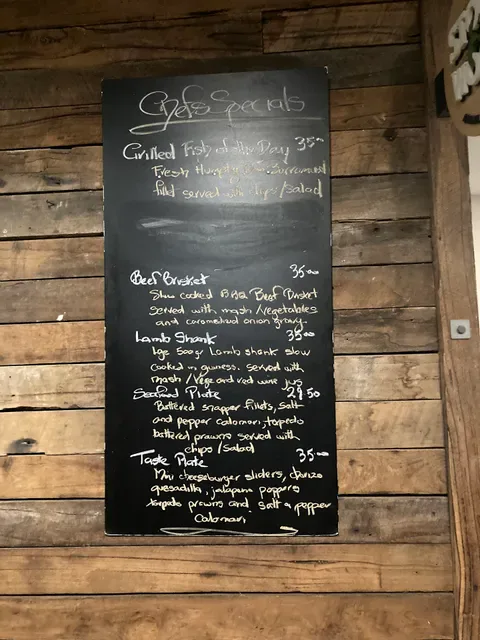 Chefs Specials
Grilled Fish of the Day 35.00
Fresh Humpty Doo Barramundi
fillet served with chips/salad
Beef Brisket 35.00
Slow cooked BBQ Beef Brisket
served with mash/vegetables
and caramelised onion gravy.
Lamb Shank 35.00
Lge 500gr Lamb shank slow
cooked in guiness. served with
mash/vege and red wine jus
Seafood Plate 29.50
Battered snapper fillets, salt
and pepper calamari, torpedo
battered prawns served with
chips/salad
Taste Plate 35.00
Mini cheeseburger sliders, chorizo
quesadilla, jalapeno poppers
torpedo prawns and salt n pepper
Calamari